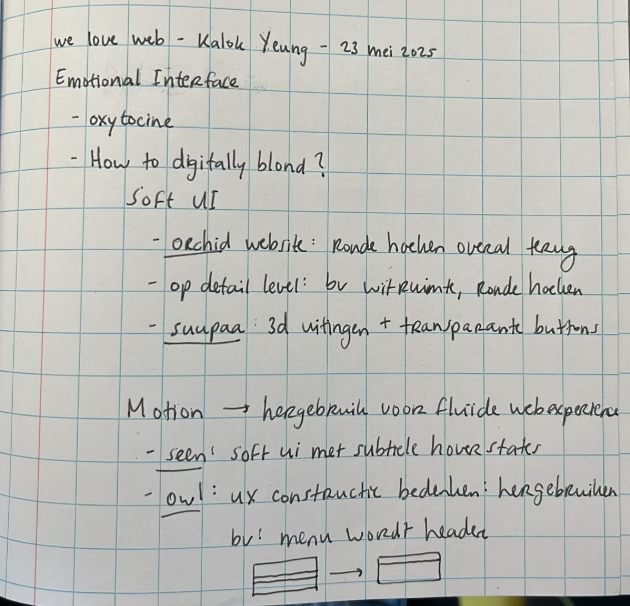 we love web - Kalok Yeung - 23 mei 2025
Emotional Interface
- oxytocine
- How to digitally blond?
Soft UI
- orchid website: Ronde hoeken overal terug
- op detail level: bv witruimte, Ronde hoeken
- suupaa: 3d uitingen + transparante buttons
Motion → hergebruik voor fluide webexperience
- seen: soft ui met subtiele hover states
- owl: ux constructie bedenken: hergebruiken
bv: menu wordt header